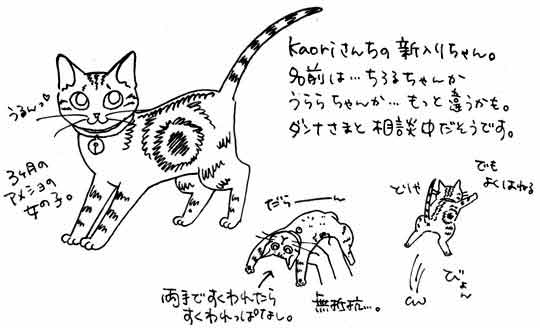 Kaoriさんちの新入りちゃん。
名前は…ちろるちゃんか
うららちゃんか…もっと違うかも。
ダンナさまと相談中だそうです。
うるんっ♡
3ヶ月の
アメショの
女の子。
だらーーん
両手ですくわれたら
すくわれっぱなし。
無抵抗…。
でも
よくはねる
びょん